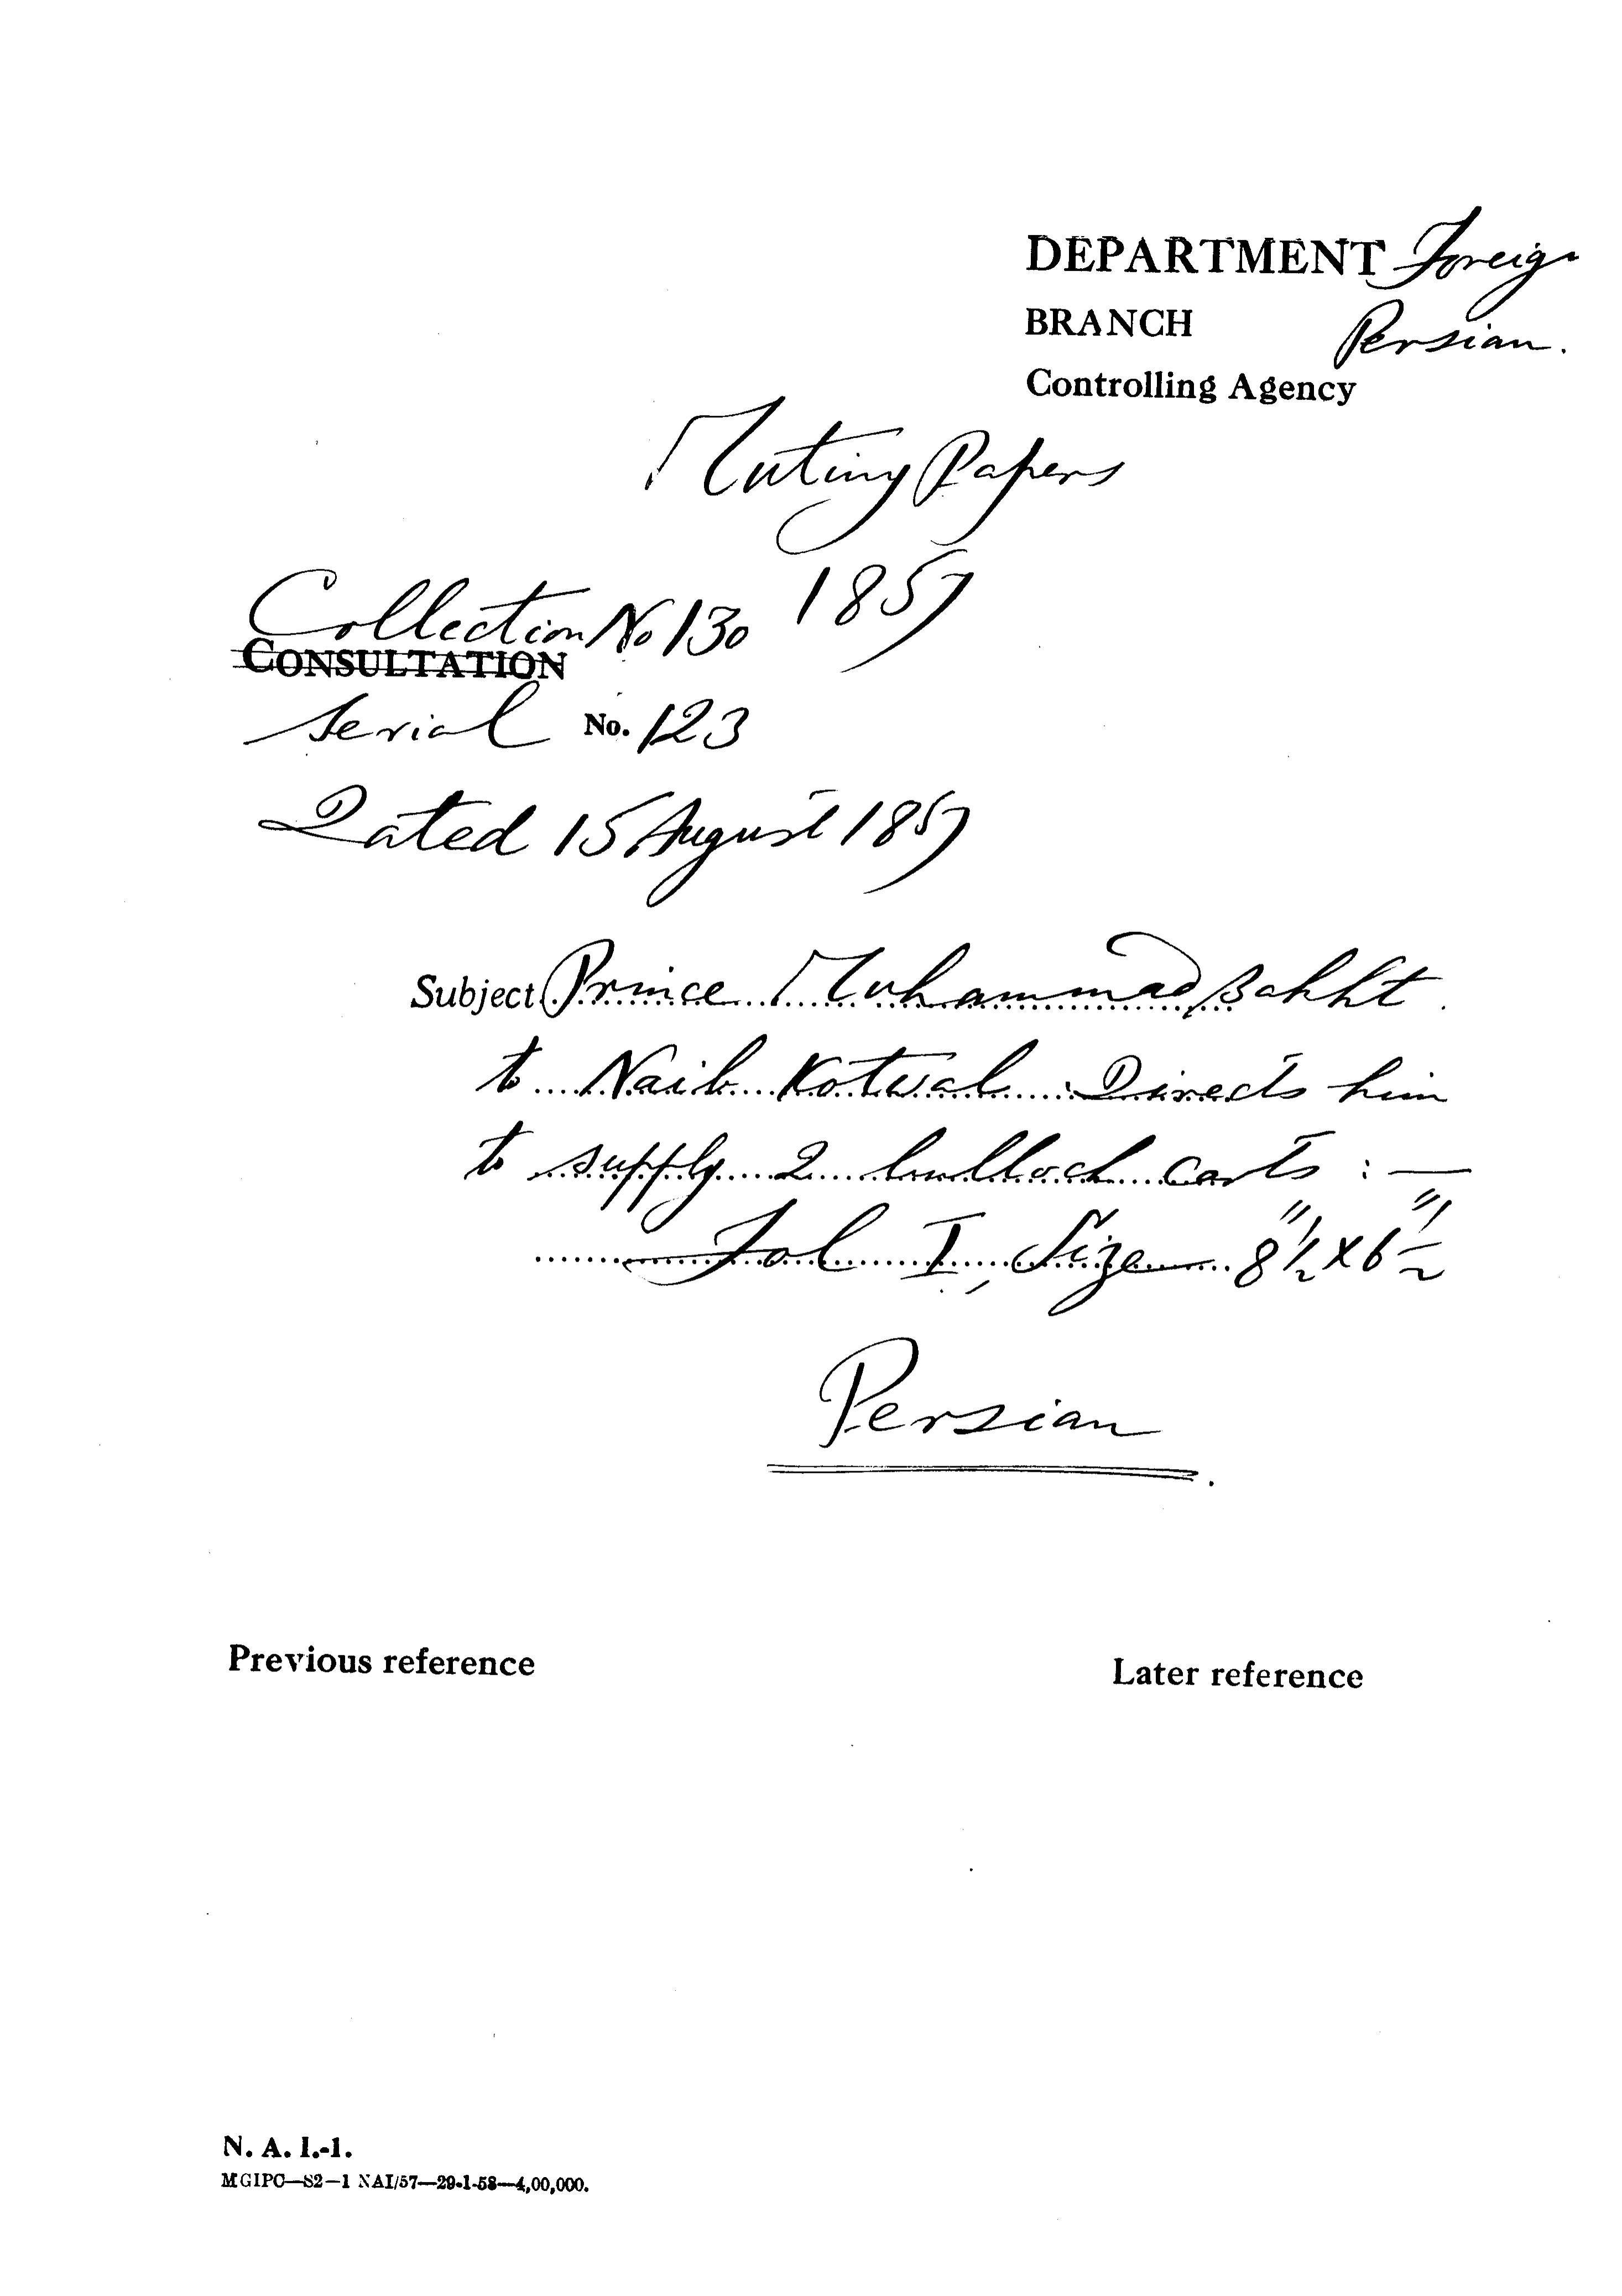 DEPARTMENT Foreign
BRANCH Persian.
Controlling Agency
Mutiny Papers
1857
Collection No 130
CONSULTATION
Serial No. 123
Dated 15 August 1857
Subject Prince Muhammad Bakht
to Naib Kotwal Directs him
to supply 2 bullock carts :—
Fol I, Size 8½" x 6½"
Persian
Previous reference
Later reference
N. A. I.-1.
MGIPC—S2—1 NAI/57—29-1-58—4,00,000.